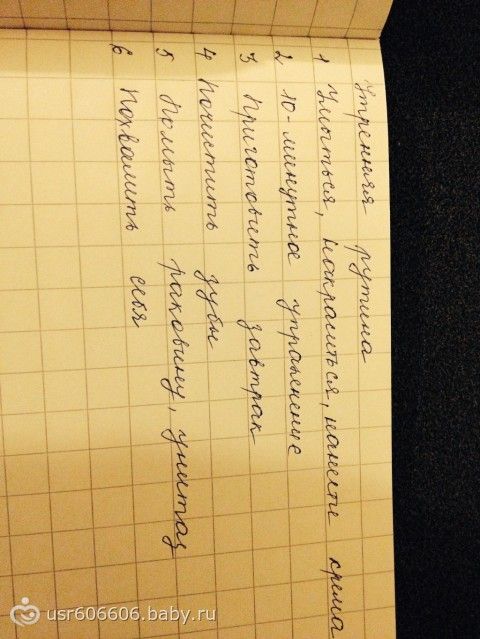 Утренняя рутина
1 Умыться, накраситься, нанести крема
2 10-минутное упражнение
3 Приготовить завтрак
4 Почистить зубы
5 Помыть раковину, унитаз
6 Похвалить себя
usr606606.baby.ru